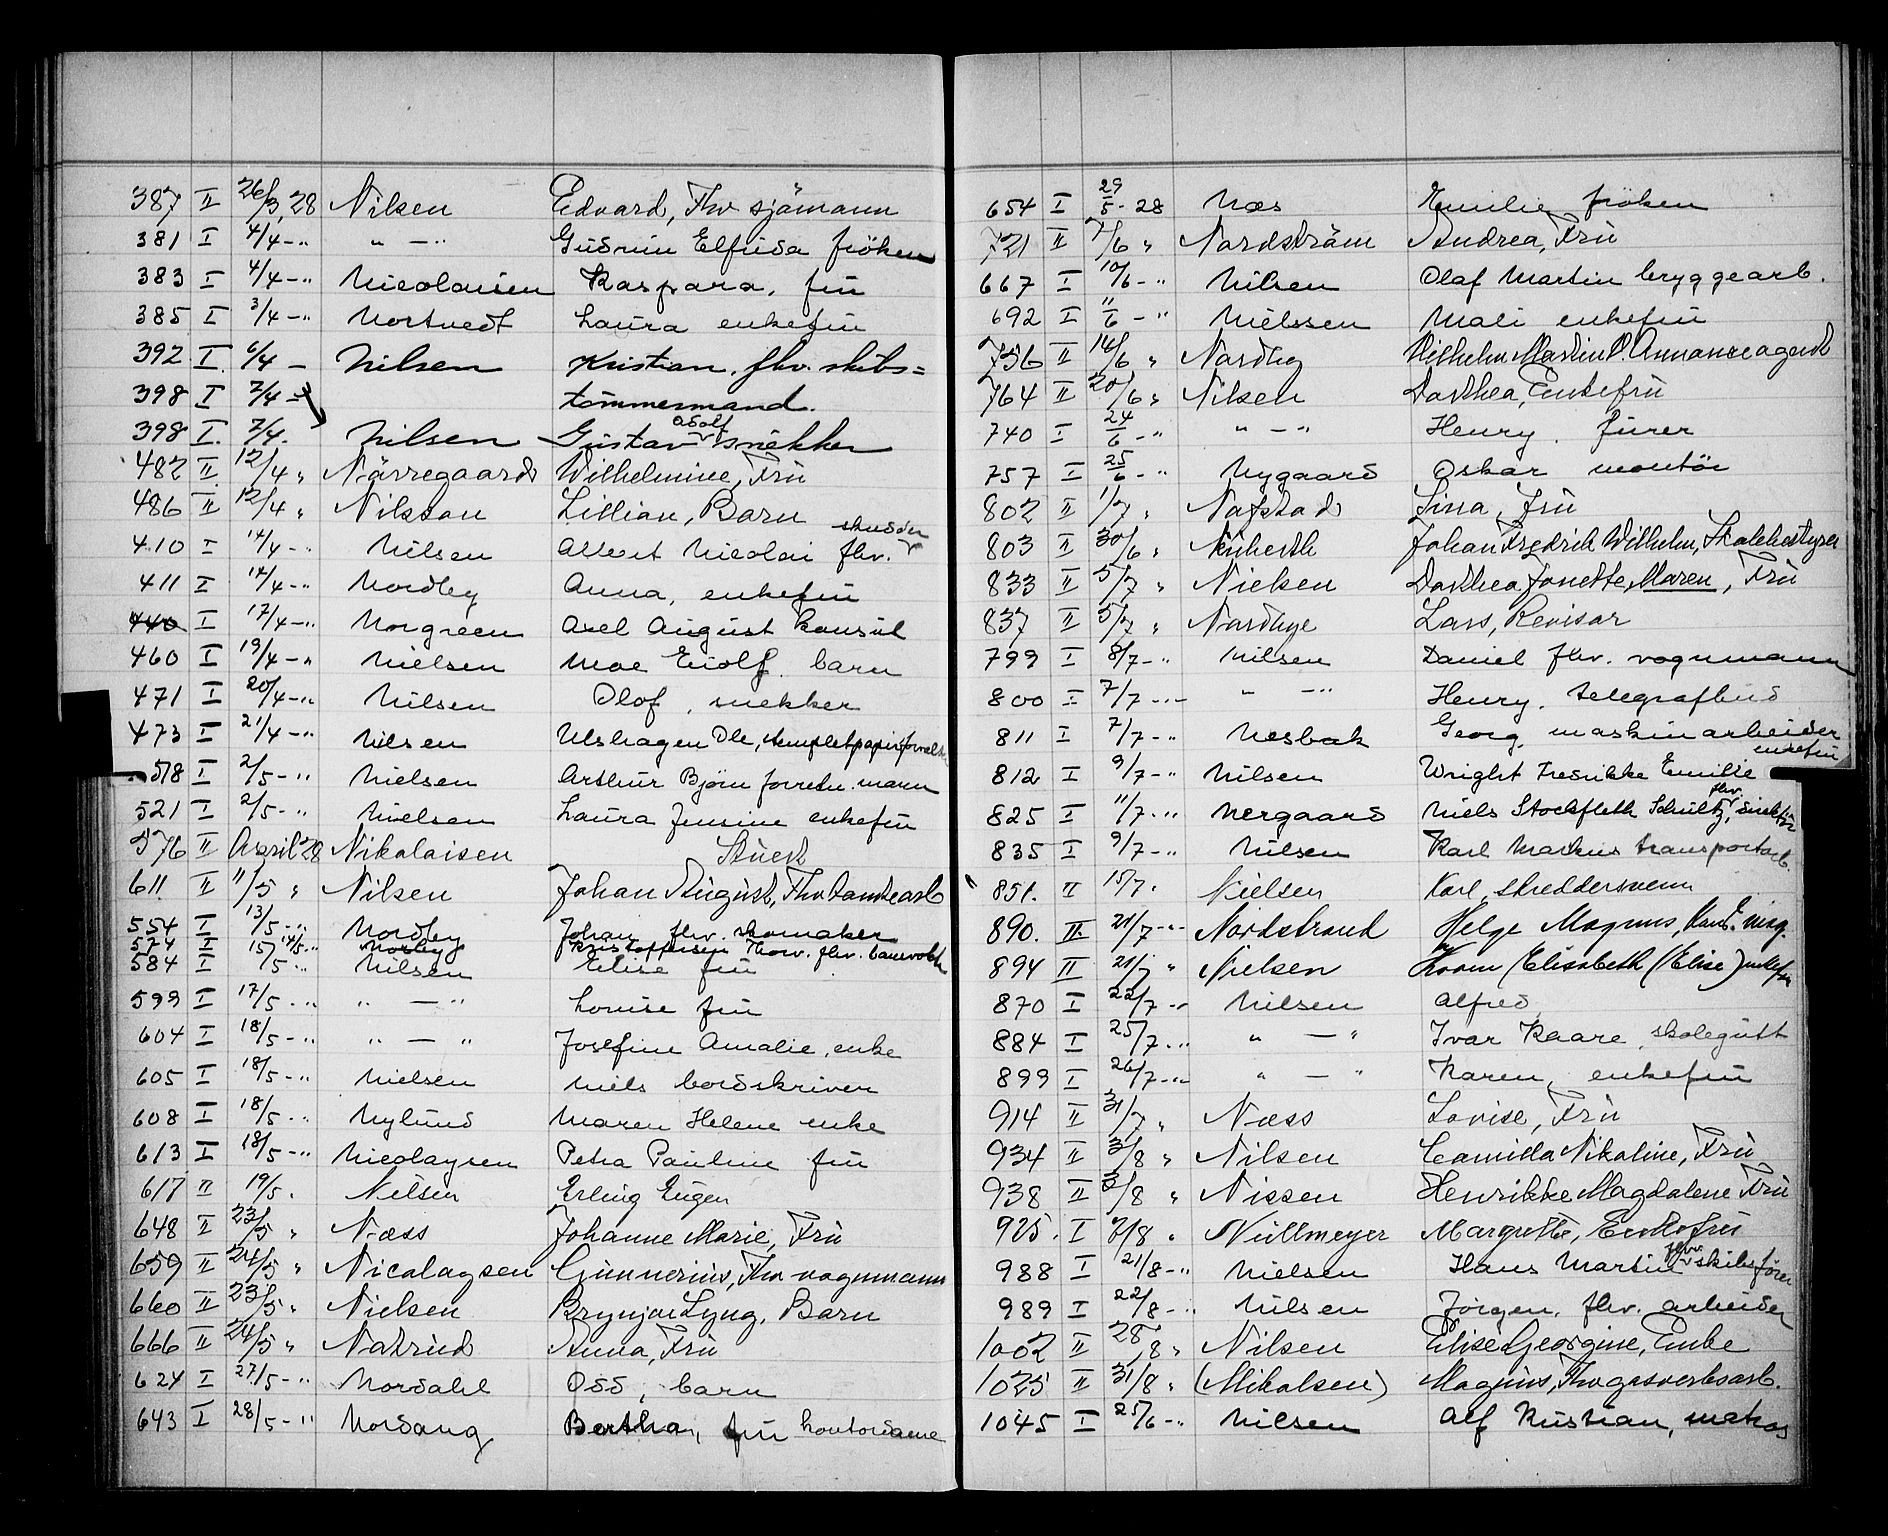 387 II 26/3,28 Nilsen Edvard, Fhv sjömann
381 I 4/4 -" " — " Gudrun Elfrida fröken
383 I 4/4 -" Nicolaisen Kaspara, fru
385 I 3/4 -" Nortvedt Laura enkefru
392 I 6/4 - Nilsen Kristian, fhv. skibs=
398 I 7/4 - tömmermand.
398 I. 7/4. Nilsen Gustav Adolf snekker
482 II 12/4 " Nörregaard Wilhelmine, Fru
486 II 12/4 " Nilsson Lillian, Barn
410 I 14/4 -" Nilsen Albert Nicolai fhv. skredder
411 I 14/4 -" Nordby Anna, enkefru
440 I 17/4 -" Norgreen Axel August konsul
460 I 19/4 -" Nielsen Moe Eiolf. barn
471 I 20/4 -" Nilsen Olof, snekker
473 I 21/4 -" Nilsen Ulshagen Ole,
518 I 2/5 -" Nielsen Arthur Björn forretn. mann
521 I 2/5 -" Nielsen Laura Jensine enkefru
576 II April 28 Nikolaisen
611 II 11/5 " Nilsen Johan August, Fhv
554 I 13/5 -" Nordby Johan fhv. skomaker
574 I 14/5 -" Norby Kristoffersen Thorv. fhv. banevokt
584 I 15/5 -" Nilsen Elise fru
599 I 17/5 -" " — " Louise fru
604 I 18/5 -" " — " Josefine Amalie, enke
605 I 18/5 -" Nielsen Niels bordskriver
608 I 18/5 -" Nylund Maren Helene enke
613 I 18/5 -" Nicolaysen Petra Pauline fru
617 II 19/5. Nelsen Erling Eugen
648 II 23/5 " Næss Johanne Marie, Fru
659 II 24/5 " Nicolaysen Gunnerius, Fhv vognmann
660 II 23/5 " Nielsen Brynjar Lyng, Barn
666 II 24/5 " Natrud Anna, Fru
624 I 27/5 -" Nordahl Odd, barn
643 I 28/5 -" Nordang Bertha, fru kontordame
654 I 29/5 - 28 Næs Emilie fröken
721 II 7/6 " Nordström Andrea, Fru
667 I 10/6 -" Nilsen Olaf Martin bryggearb.
692 I 11/6 -" Nielssen Mali enkefru
736 II 14/6 " Nordby Wilhelm Martin P. Annonceagent
764 II 20/6 " Nilsen Dorthea, Enkefru
740 I 24/6 -" " — " Henry. furer
757 I 25/6 -" Nygaard Oskar montör
802 II 1/7 " Nafstad Lina, Fru
803 II 30/6 " Johan Fredrik Wilhelm, Skolebestyrer
833 II 5/7 " Nielsen Dorthea Jonette, Maren, Fru
837 II 5/7 " Nordbye Lars, Revisor
799 I 8/7 -" Nilsen Daniel fhv. vognmann
800 I 7/7 -" " — " Henry, telegrafbud
811 I 7/7 -" Nesbak Georg, maskinarbeider
812 I 9/7 -" Nilsen Wright Fredrikke Emilie enkefru
825 I 11/7 -" Nergaard Niels Stockfleth Schultz, fhv. direktör
835 I 9/7 -" Nilsen Karl Markus transportarb.
851. II 15/7. Nielsen Karl, skreddersvenn
890. II 21/7 -" Nordstrand Helge Magnus,
894 II 21/7 " Nielsen Hoam (Elisabeth (Elise) enkefru
870 I 22/7 -" Nilsen Alfred
884 I 25/7 -" " — " Ivar Kaare, skolegutt
899 I 26/7 -" " — " Karen, enkefru
914 II 31/7 " Næss Lovise, Fru
934 II 3/8 " Nilsen Camilla Nikoline, Fru
938 II 3/8 " Nissen Henrikke Magdalene Fru
925. I 7/8 " Nüllmeyer Margrethe, Enkefru
988 I 21/8 -" Nielsen Hans Martin fhv. skibsförer
989 I 22/8 -" Nilsen Jörgen, fhv. arbeider
1002 II 28/8 " Nilsen Elise Georgine, Enke
1025 II 31/8 " (Mikalsen) Magnus, Fhv gasverksarb.
1045 I 25/6 -" Nilsen Alf Kristian, matros